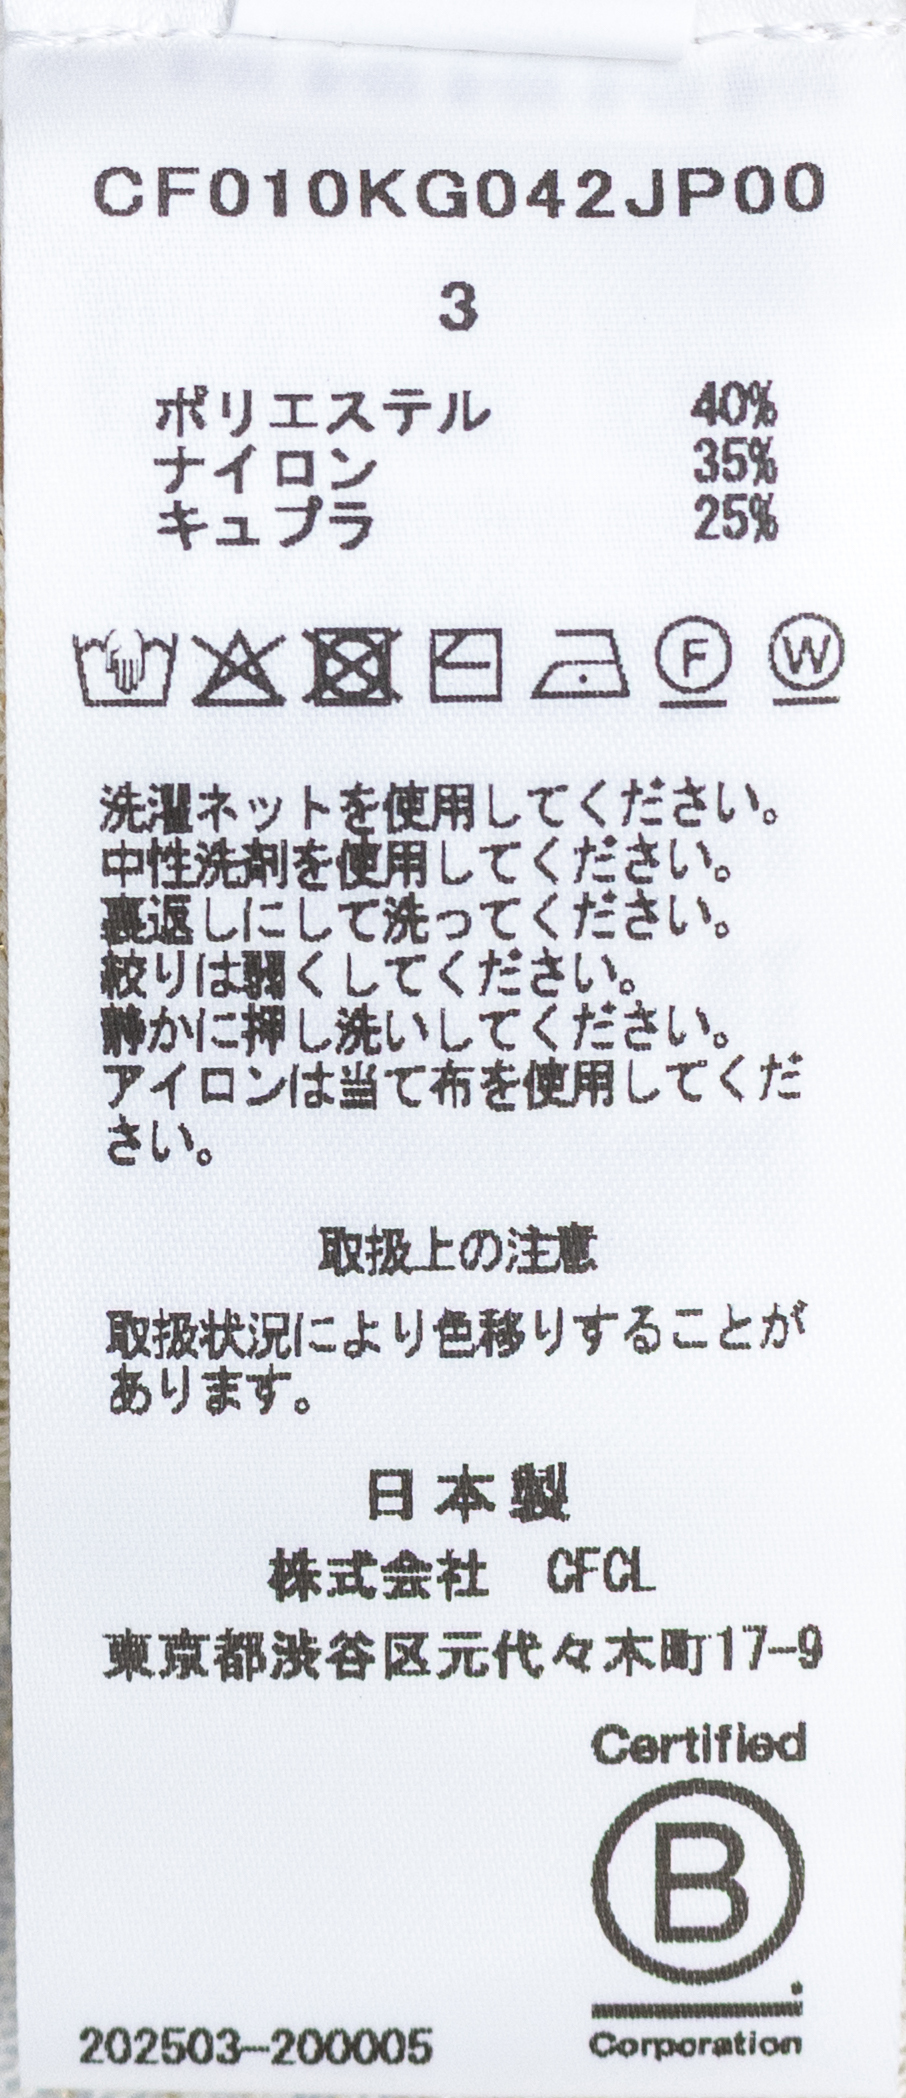 CF010KG042JP00
3
ポリエステル 40%
ナイロン 35%
キュプラ 25%
F W
洗濯ネットを使用してください。
中性洗剤を使用してください。
裏返しにして洗ってください。
絞りは弱くしてください。
静かに押し洗いしてください。
アイロンは当て布を使用してくだ
さい。
取扱上の注意
取扱状況により色移りすることが
あります。
日本製
株式会社 CFCL
東京都渋谷区元代々木町17-9
Certified
B
Corporation
202503-200005